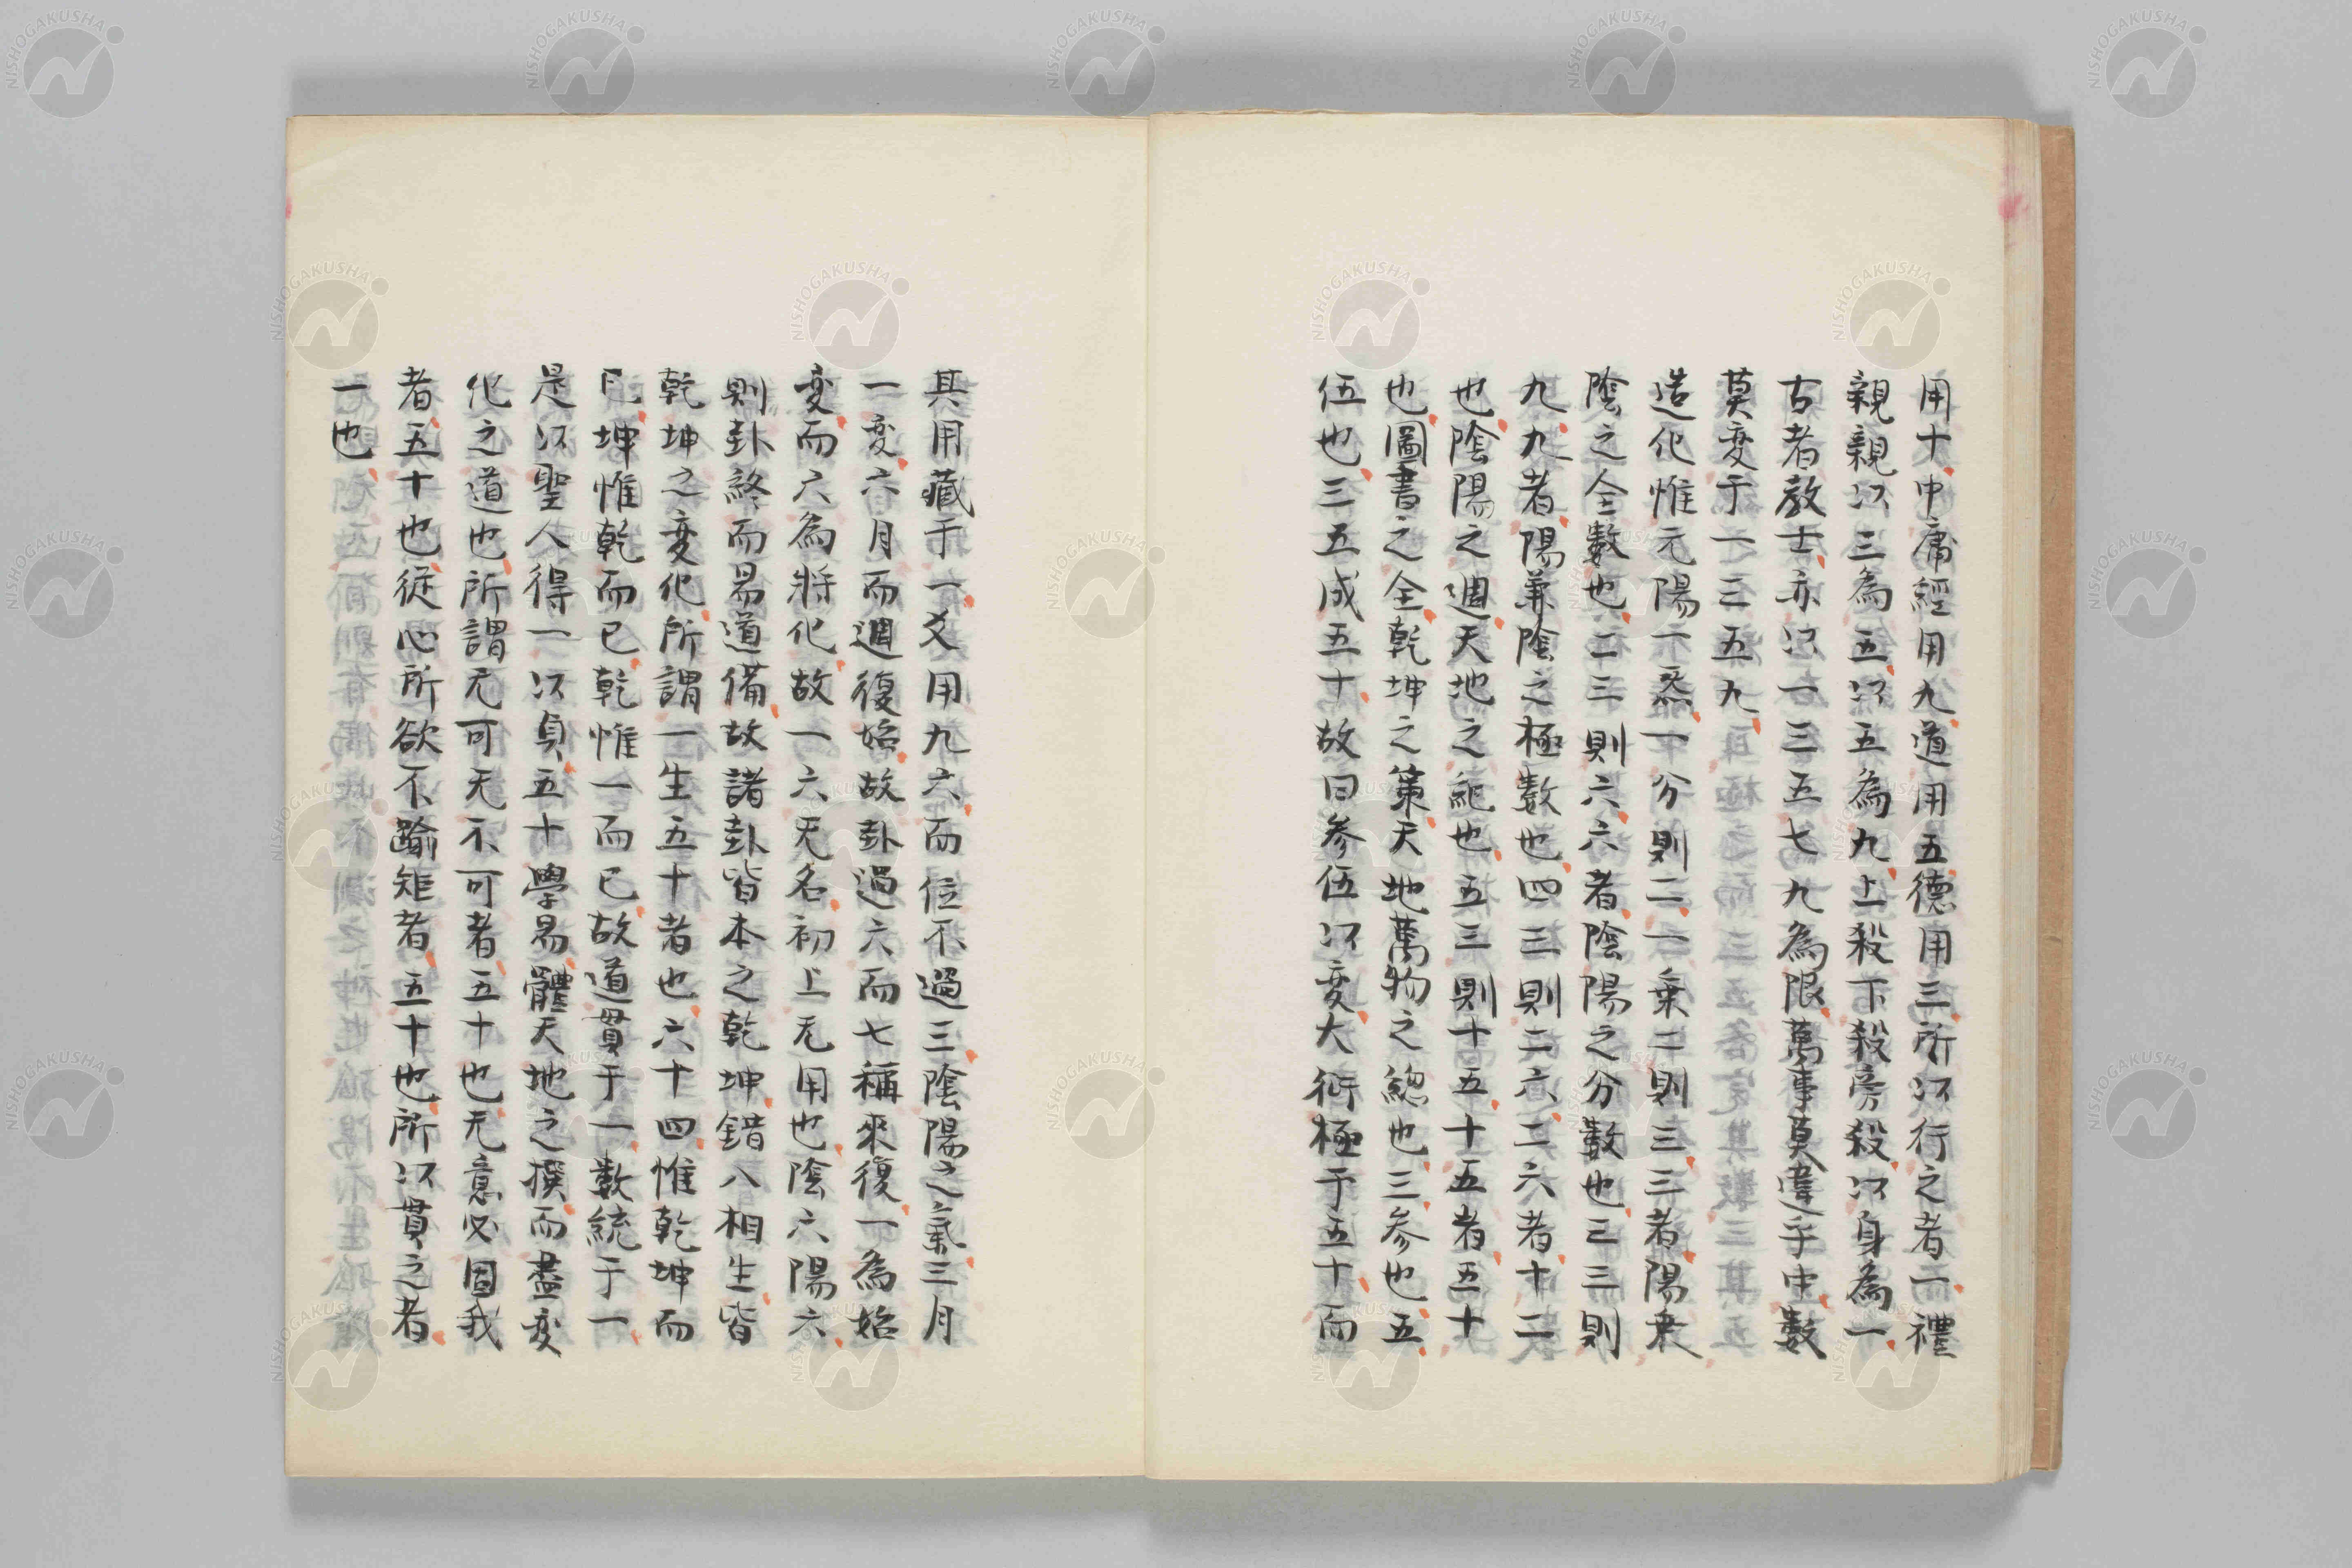 用十中庸經用九道用五德用三所以行之者一禮
親親以三為五以五為九上殺下殺旁殺以身為一
古者教士亦以一三五七九為限萬事莫違乎中數
莫変于一三五九
造化惟元陽一炁一分則二二一乗二則三三者陽乗
陰之全數也二三則六六者陰陽之分數也三三則
九九者陽兼陰之極數也四三則二六二六者十二
也陰陽之週天地之紀也五三則十五十五者五十
也圖書之全乾坤之策天地萬物之總也三參也五
伍也三五成五十故曰參伍以変大衍極于五十而
其用藏于一爻用九六而位不過三陰陽之氣三月
一変六月而週復始故卦過六而七稱來復一為始
変而六為將化故一六无名初上无用也陰六陽六
則卦終而易道備故諸卦皆本之乾坤錯八相生皆
乾坤之変化所謂一生五十者也六十四惟乾坤而
已坤惟乾而已乾惟一而已故道貫于一數統于一
是以聖人得一以貞五十學易體天地之撰而盡変
化之道也所謂无可无不可者五十也无意必固我
者五十也從心所欲不踰矩者五十也所以貫之者
一也
NISHOGAKUSHA